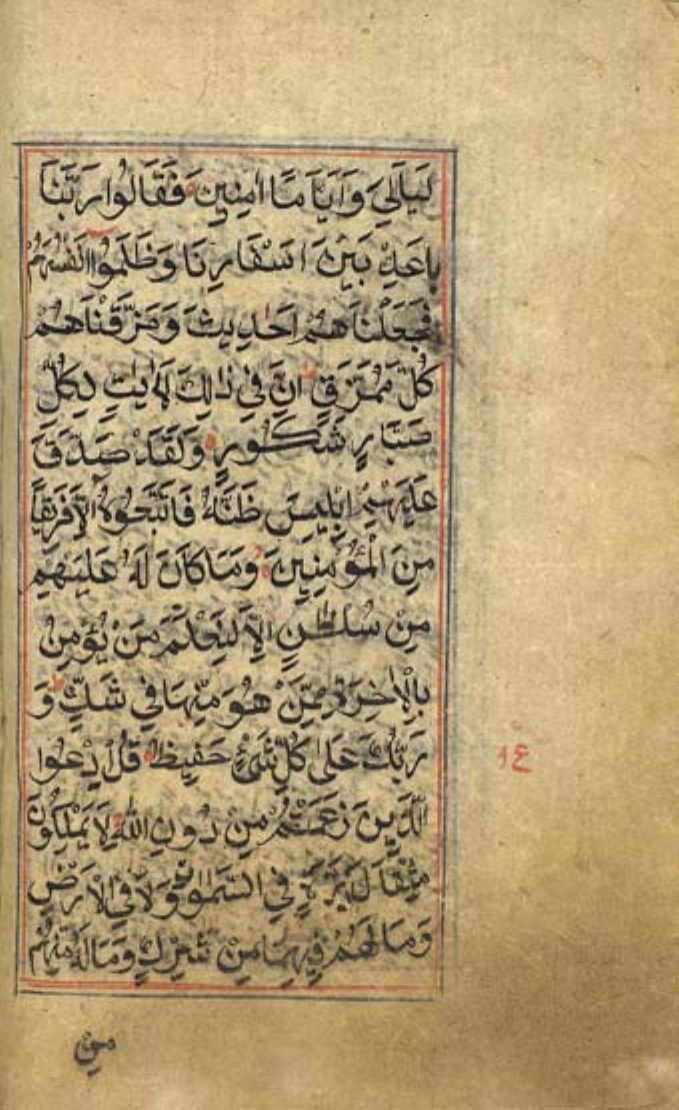 لَيَالِيَ وَاَيَّامًا اٰمِنِينَ فَقَالُوا رَبَّنَا
بَاعِدْ بَيْنَ اَسْفَارِنَا وَظَلَمُوا اَنْفُسَهُمْ
فَجَعَلْنَاهُمْ اَحَادِيثَ وَمَزَّقْنَاهُمْ
كُلَّ مُمَزَّقٍ اِنَّ فِي ذٰلِكَ لَاٰيَاتٍ لِكُلِّ
صَبَّارٍ شَكُورٍ وَلَقَدْ صَدَّقَ
عَلَيْهِمْ اِبْلِيسُ ظَنَّهُ فَاتَّبَعُوهُ اِلَّا فَرِيقًا
مِنَ الْمُؤْمِنِينَ وَمَا كَانَ لَهُ عَلَيْهِمْ
مِنْ سُلْطٰنٍ اِلَّا لِنَعْلَمَ مَنْ يُؤْمِنُ
بِالْاٰخِرَةِ مِمَّنْ هُوَ مِنْهَا فِي شَكٍّ وَ
رَبُّكَ عَلٰى كُلِّ شَيْءٍ حَفِيظٌ قُلْ اِدْعُوا
الَّذِينَ زَعَمْتُمْ مِنْ دُونِ اللّٰهِ لَا يَمْلِكُونَ
مِثْقَالَ ذَرَّةٍ فِي السَّمٰوَاتِ وَلَا فِي الْاَرْضِ
وَمَا لَهُمْ فِيهِمَا مِنْ شِرْكٍ وَمَا لَهُ مِنْهُمْ
مِنْ